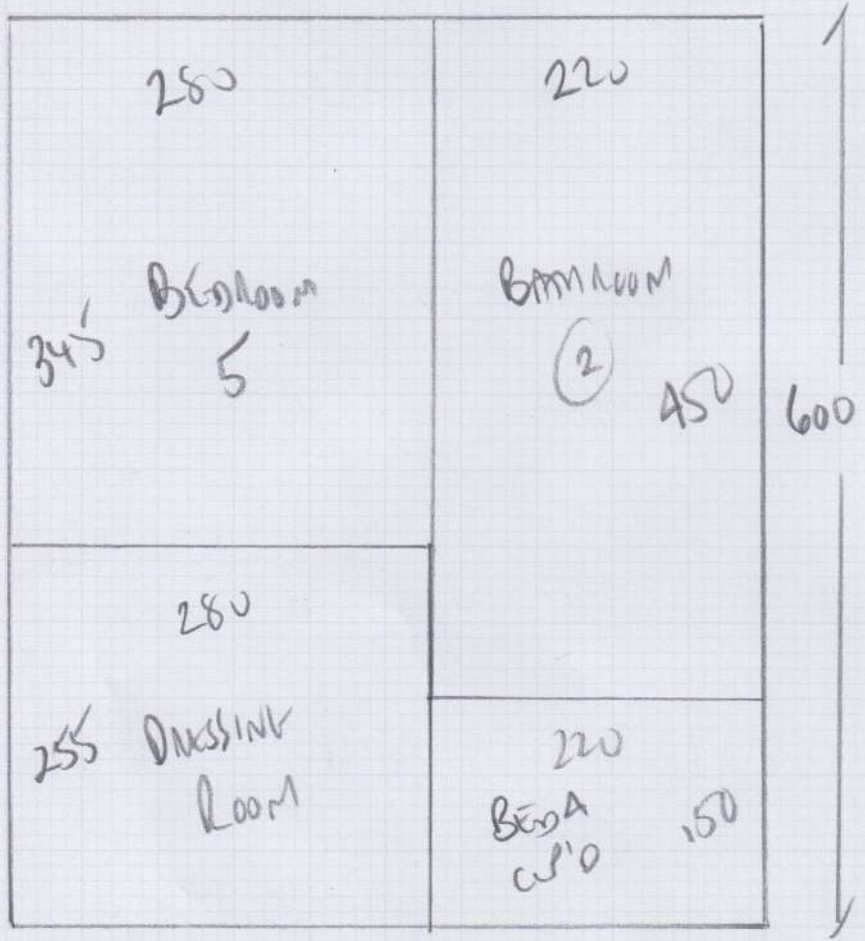 280
220
BEDROOM
5
345
BATHROOM
2
450
600
280
255
DRESSING
ROOM
220
BED 4
CUP'D
150